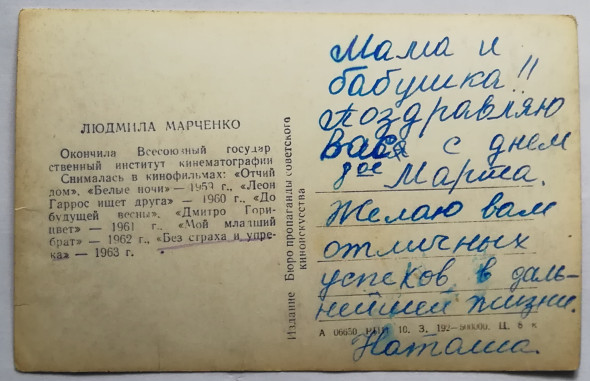 ЛЮДМИЛА МАРЧЕНКО
Окончила Всесоюзный государ
ственный институт кинематографии
Снималась в кинофильмах: «Отчий
дом», «Белые ночи» — 1959 г., «Леон
Гаррос ищет друга» — 1960 г., «До
будущей весны», «Дмитро Гори-
цвет» — 1961 г., «Мой младший
брат» — 1962 г., «Без страха и упре-
ка» — 1963 г.
Издание Бюро пропаганды советского
киноискусства
Мама и
бабушка!!
Поздравляю
вас с днем
8ое Марта.
Желаю вам
отличных
успехов в даль-
нейшей жизни.
А 06650 10. 3. 192—500000. Ц. 8 к
Наташа.